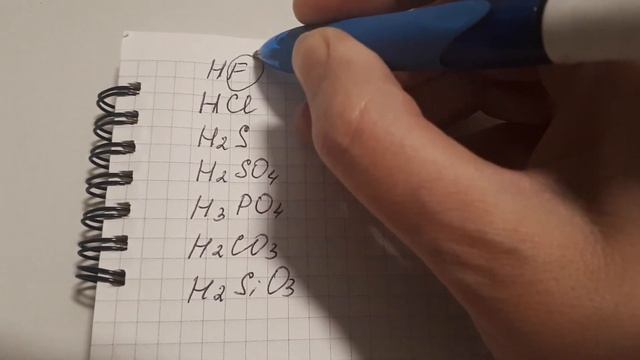 HF
HCl
H2S
H2SO4
H3PO4
H2CO3
H2SiO3